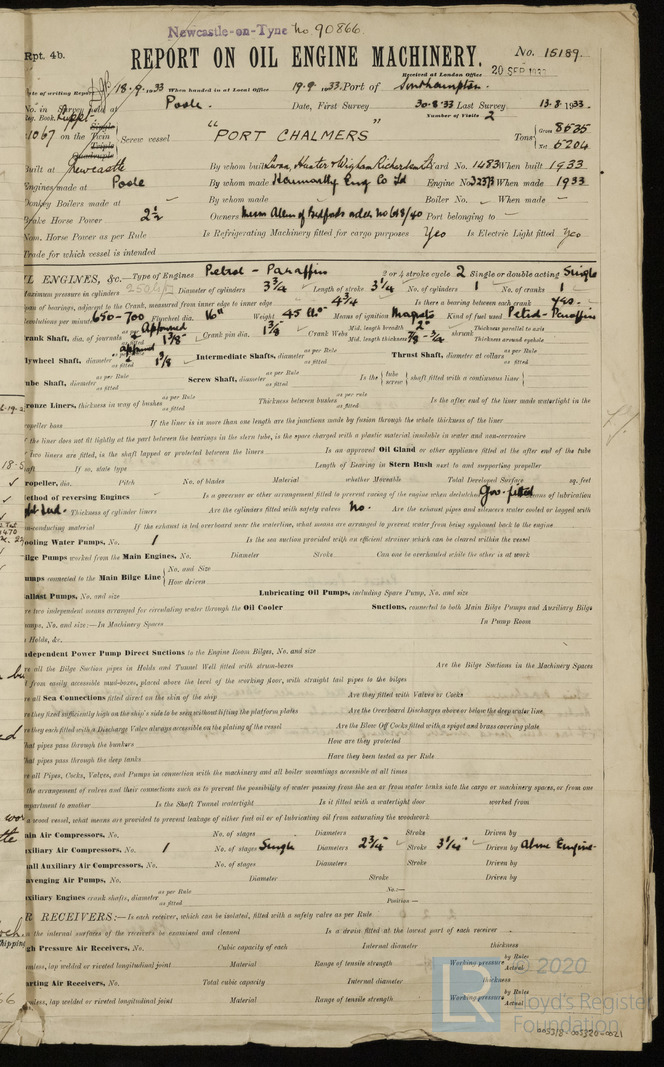 Newcastle-on-Tyne No 90866
Rpt. 4b.
REPORT ON OIL ENGINE MACHINERY.
No. 15189.
Received at London Office 20 SEP 1933
Date of writing Report 18.9.1933 When handed in at Local Office 19.9.1933 Port of Southampton.
No. in Survey held at Poole. Date, First Survey 30.8.33 Last Survey 13.9.1933.
Reg. Book. Number of Visits 2
on the Single Twin Triple Quadruple Screw vessel "PORT CHALMERS" Tons Gross 8535 Net 5204
Built at Newcastle By whom built Swan, Hunter & Wigham Richardson Ltd Yard No. 1483 When built 1933
Engines made at Poole By whom made Hamworthy Eng Co Ltd Engine No When made 1933
Donkey Boilers made at — By whom made Boiler No. — When made —
Brake Horse Power 2½ Owners Port belonging to —
Nom. Horse Power as per Rule Is Refrigerating Machinery fitted for cargo purposes Yes Is Electric Light fitted Yes
Trade for which vessel is intended
OIL ENGINES, &c. Type of Engines Petrol - Paraffin 2 or 4 stroke cycle 2 Single or double acting Single
Maximum pressure in cylinders Diameter of cylinders 3¾ Length of stroke 3¼ No. of cylinders 1 No. of cranks 1
Span of bearings, adjacent to the Crank, measured from inner edge to inner edge 4¾ Is there a bearing between each crank yes
Revolutions per minute 650-700 Flywheel dia. 16" Weight 45 lbs. Means of ignition Magneto Kind of fuel used Petrol-Paraffin
Crank Shaft, dia. of journals as per Rule Approved as fitted 1⅜" Crank pin dia. 1⅜ Crank Webs Mid. length breadth 2" Mid. length thickness shrunk Thickness parallel to axis Thickness around eyehole
Flywheel Shaft, diameter as per Rule Approved as fitted 1⅜ Intermediate Shafts, diameter as per Rule as fitted Thrust Shaft, diameter at collars as per Rule as fitted
Tube Shaft, diameter as per Rule as fitted Screw Shaft, diameter as per Rule as fitted Is the tube screw shaft fitted with a continuous liner
Bronze Liners, thickness in way of bushes as per Rule as fitted Thickness between bushes as per rule as fitted Is the after end of the liner made watertight in the
propeller boss If the liner is in more than one length are the junctions made by fusion through the whole thickness of the liner
If the liner does not fit tightly at the part between the bearings in the stern tube, is the space charged with a plastic material insoluble in water and non-corrosive
If two liners are fitted, is the shaft lapped or protected between the liners Is an approved Oil Gland or other appliance fitted at the after end of the tube
shaft If so, state type Length of Bearing in Stern Bush next to and supporting propeller
Propeller, dia. Pitch No. of blades Material whether Moveable Total Developed Surface sq. feet
Method of reversing Engines — Is a governor or other arrangement fitted to prevent racing of the engine when declutched Gov. fitted Means of lubrication
Thickness of cylinder liners Are the cylinders fitted with safety valves No. Are the exhaust pipes and silencers water cooled or lagged with
non-conducting material If the exhaust is led overboard near the waterline, what means are arranged to prevent water from being syphoned back to the engine
Cooling Water Pumps, No. 1 Is the sea suction provided with an efficient strainer which can be cleared within the vessel
Bilge Pumps worked from the Main Engines, No. Diameter Stroke Can one be overhauled while the other is at work
Pumps connected to the Main Bilge Line No. and Size How driven
Ballast Pumps, No. and size Lubricating Oil Pumps, including Spare Pump, No. and size
Are two independent means arranged for circulating water through the Oil Cooler Suctions, connected to both Main Bilge Pumps and Auxiliary Bilge
Pumps, No. and size:—In Machinery Spaces In Pump Room
In Holds, &c.
Independent Power Pump Direct Suctions to the Engine Room Bilges, No. and size
Are all the Bilge Suction pipes in Holds and Tunnel Well fitted with strum-boxes Are the Bilge Suctions in the Machinery Spaces
led from easily accessible mud-boxes, placed above the level of the working floor, with straight tail pipes to the bilges
Are all Sea Connections fitted direct on the skin of the ship Are they fitted with Valves or Cocks
Are they fixed sufficiently high on the ship's side to be seen without lifting the platform plates Are the Overboard Discharges above or below the deep water line
Are they each fitted with a Discharge Valve always accessible on the plating of the vessel Are the Blow Off Cocks fitted with a spigot and brass covering plate
What pipes pass through the bunkers How are they protected
What pipes pass through the deep tanks Have they been tested as per Rule
Are all Pipes, Cocks, Valves, and Pumps in connection with the machinery and all boiler mountings accessible at all times
Is the arrangement of valves and their connections such as to prevent the possibility of water passing from the sea or from water tanks into the cargo or machinery spaces, or from one
compartment to another Is the Shaft Tunnel watertight Is it fitted with a watertight door worked from
If a wood vessel, what means are provided to prevent leakage of either fuel oil or of lubricating oil from saturating the woodwork
Main Air Compressors, No. No. of stages Diameters Stroke Driven by
Auxiliary Air Compressors, No. 1 No. of stages Single Diameters 2¾" Stroke 3¼" Driven by Above Engine.
Small Auxiliary Air Compressors, No. No. of stages Diameters Stroke Driven by
Scavenging Air Pumps, No. Diameter Stroke Driven by
Auxiliary Engines crank shafts, diameter as per Rule as fitted No.:— Position —
AIR RECEIVERS:—Is each receiver, which can be isolated, fitted with a safety valve as per Rule
Can the internal surfaces of the receivers be examined and cleaned Is a drain fitted at the lowest part of each receiver
High Pressure Air Receivers, No. Cubic capacity of each Internal diameter thickness
Seamless, lap welded or riveted longitudinal joint Material Range of tensile strength Working pressure by Rules Actual
Starting Air Receivers, No. Total cubic capacity Internal diameter thickness
Seamless, lap welded or riveted longitudinal joint Material Range of tensile strength Working pressure by Rules Actual
© 2020
Lloyd's Register
Foundation
003318-003320-0021